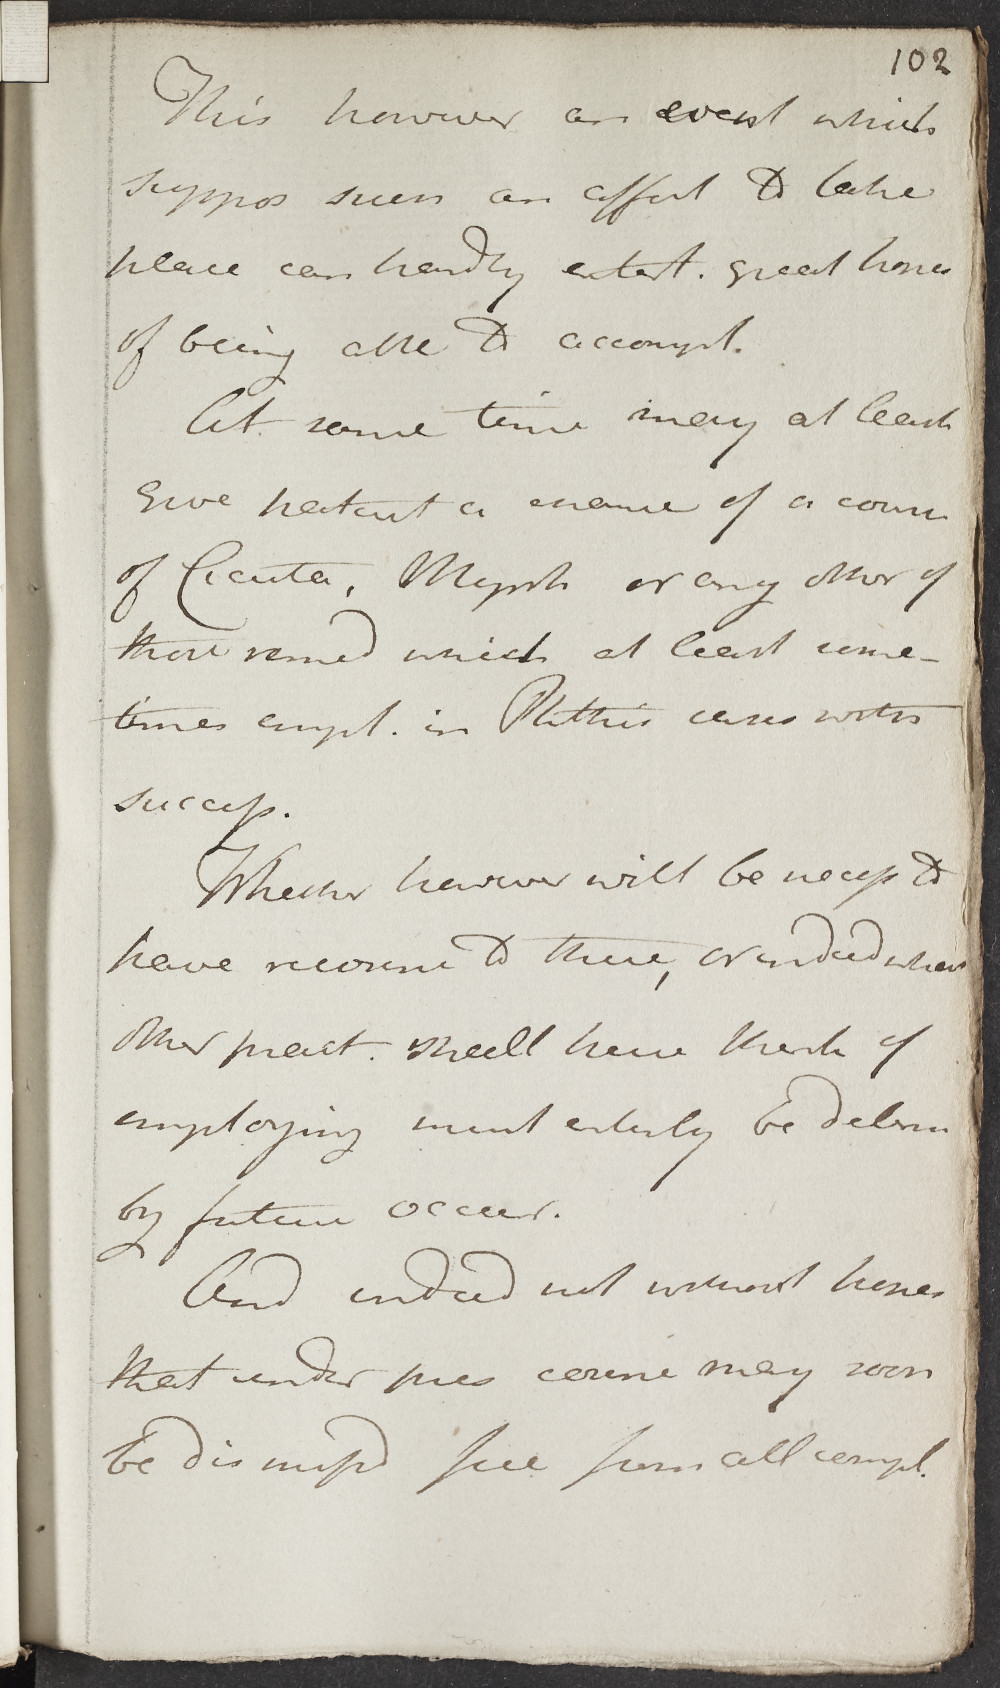 102
This however an event which
suppos such an affect to take
place can hardly entert. great hopes
of being able to accompl.
At same time may at least
give patient a chance of a course
of Cicuta, Myrrh or any other of
those remed which at least some-
times empl. in Phthis cases with
success.
Whether however will be necess to
have recourse to these, or indeed what
other pract. shall have think of
employing must entirely be determ
by future occurr.
And indeed not without hopes
that under pres course may soon
be dismiss'd free from all compl.